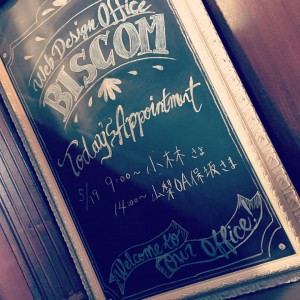 Web Design Office
BISCOM
Today's Appointment
5/19 9:00〜 小木さま
14:00〜 山梨OA保坂さま
Welcome to
Our Office!